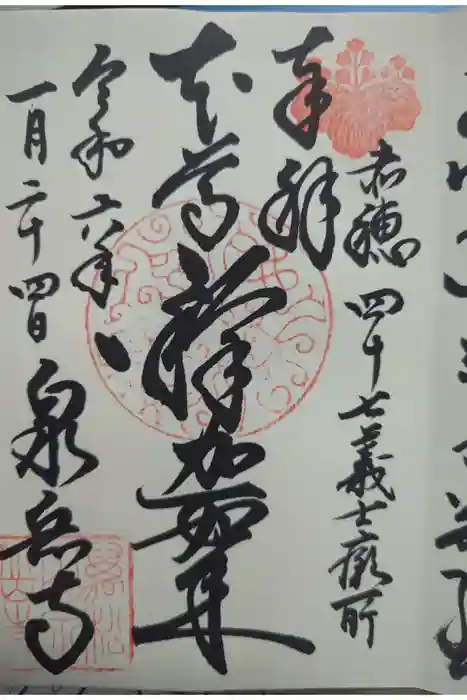 奉拝
赤穂 四十七義士廟所
本尊 釋加如来
令和 六年
一月二十四日 泉岳寺